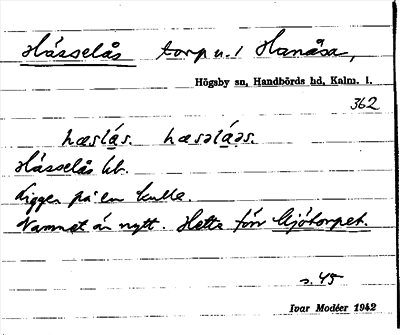 Hásselås torp u. / Hanåsa,
Högsby sn, Handbörds hd, Kalm. l.
362
hæslás. hæsəláəs.
Hásselås kb.
Ligger på en kulle.
Namnet är nytt. Hette förr
s. 45
Ivar Modéer 1942